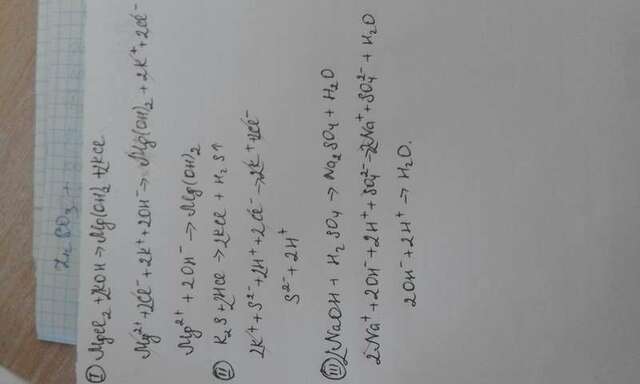 Zn SO₃ +
I MgCl₂ + 2KOH → Mg(OH)₂ + 2KCl
Mg²⁺ + 2Cl⁻ + 2K⁺ + 2OH⁻ → Mg(OH)₂ + 2K⁺ + 2Cl⁻
Mg²⁺ + 2OH⁻ → Mg(OH)₂
II K₂S + 2HCl → 2KCl + H₂S↑
2K⁺ + S²⁻ + 2H⁺ + 2Cl⁻ → 2K⁺ + 2Cl⁻
S²⁻ + 2H⁺
III 2NaOH + H₂SO₄ → Na₂SO₄ + H₂O
2Na⁺ + 2OH⁻ + 2H⁺ + SO₄²⁻ → 2Na⁺ + SO₄²⁻ + H₂O
2OH⁻ + 2H⁺ → H₂O.